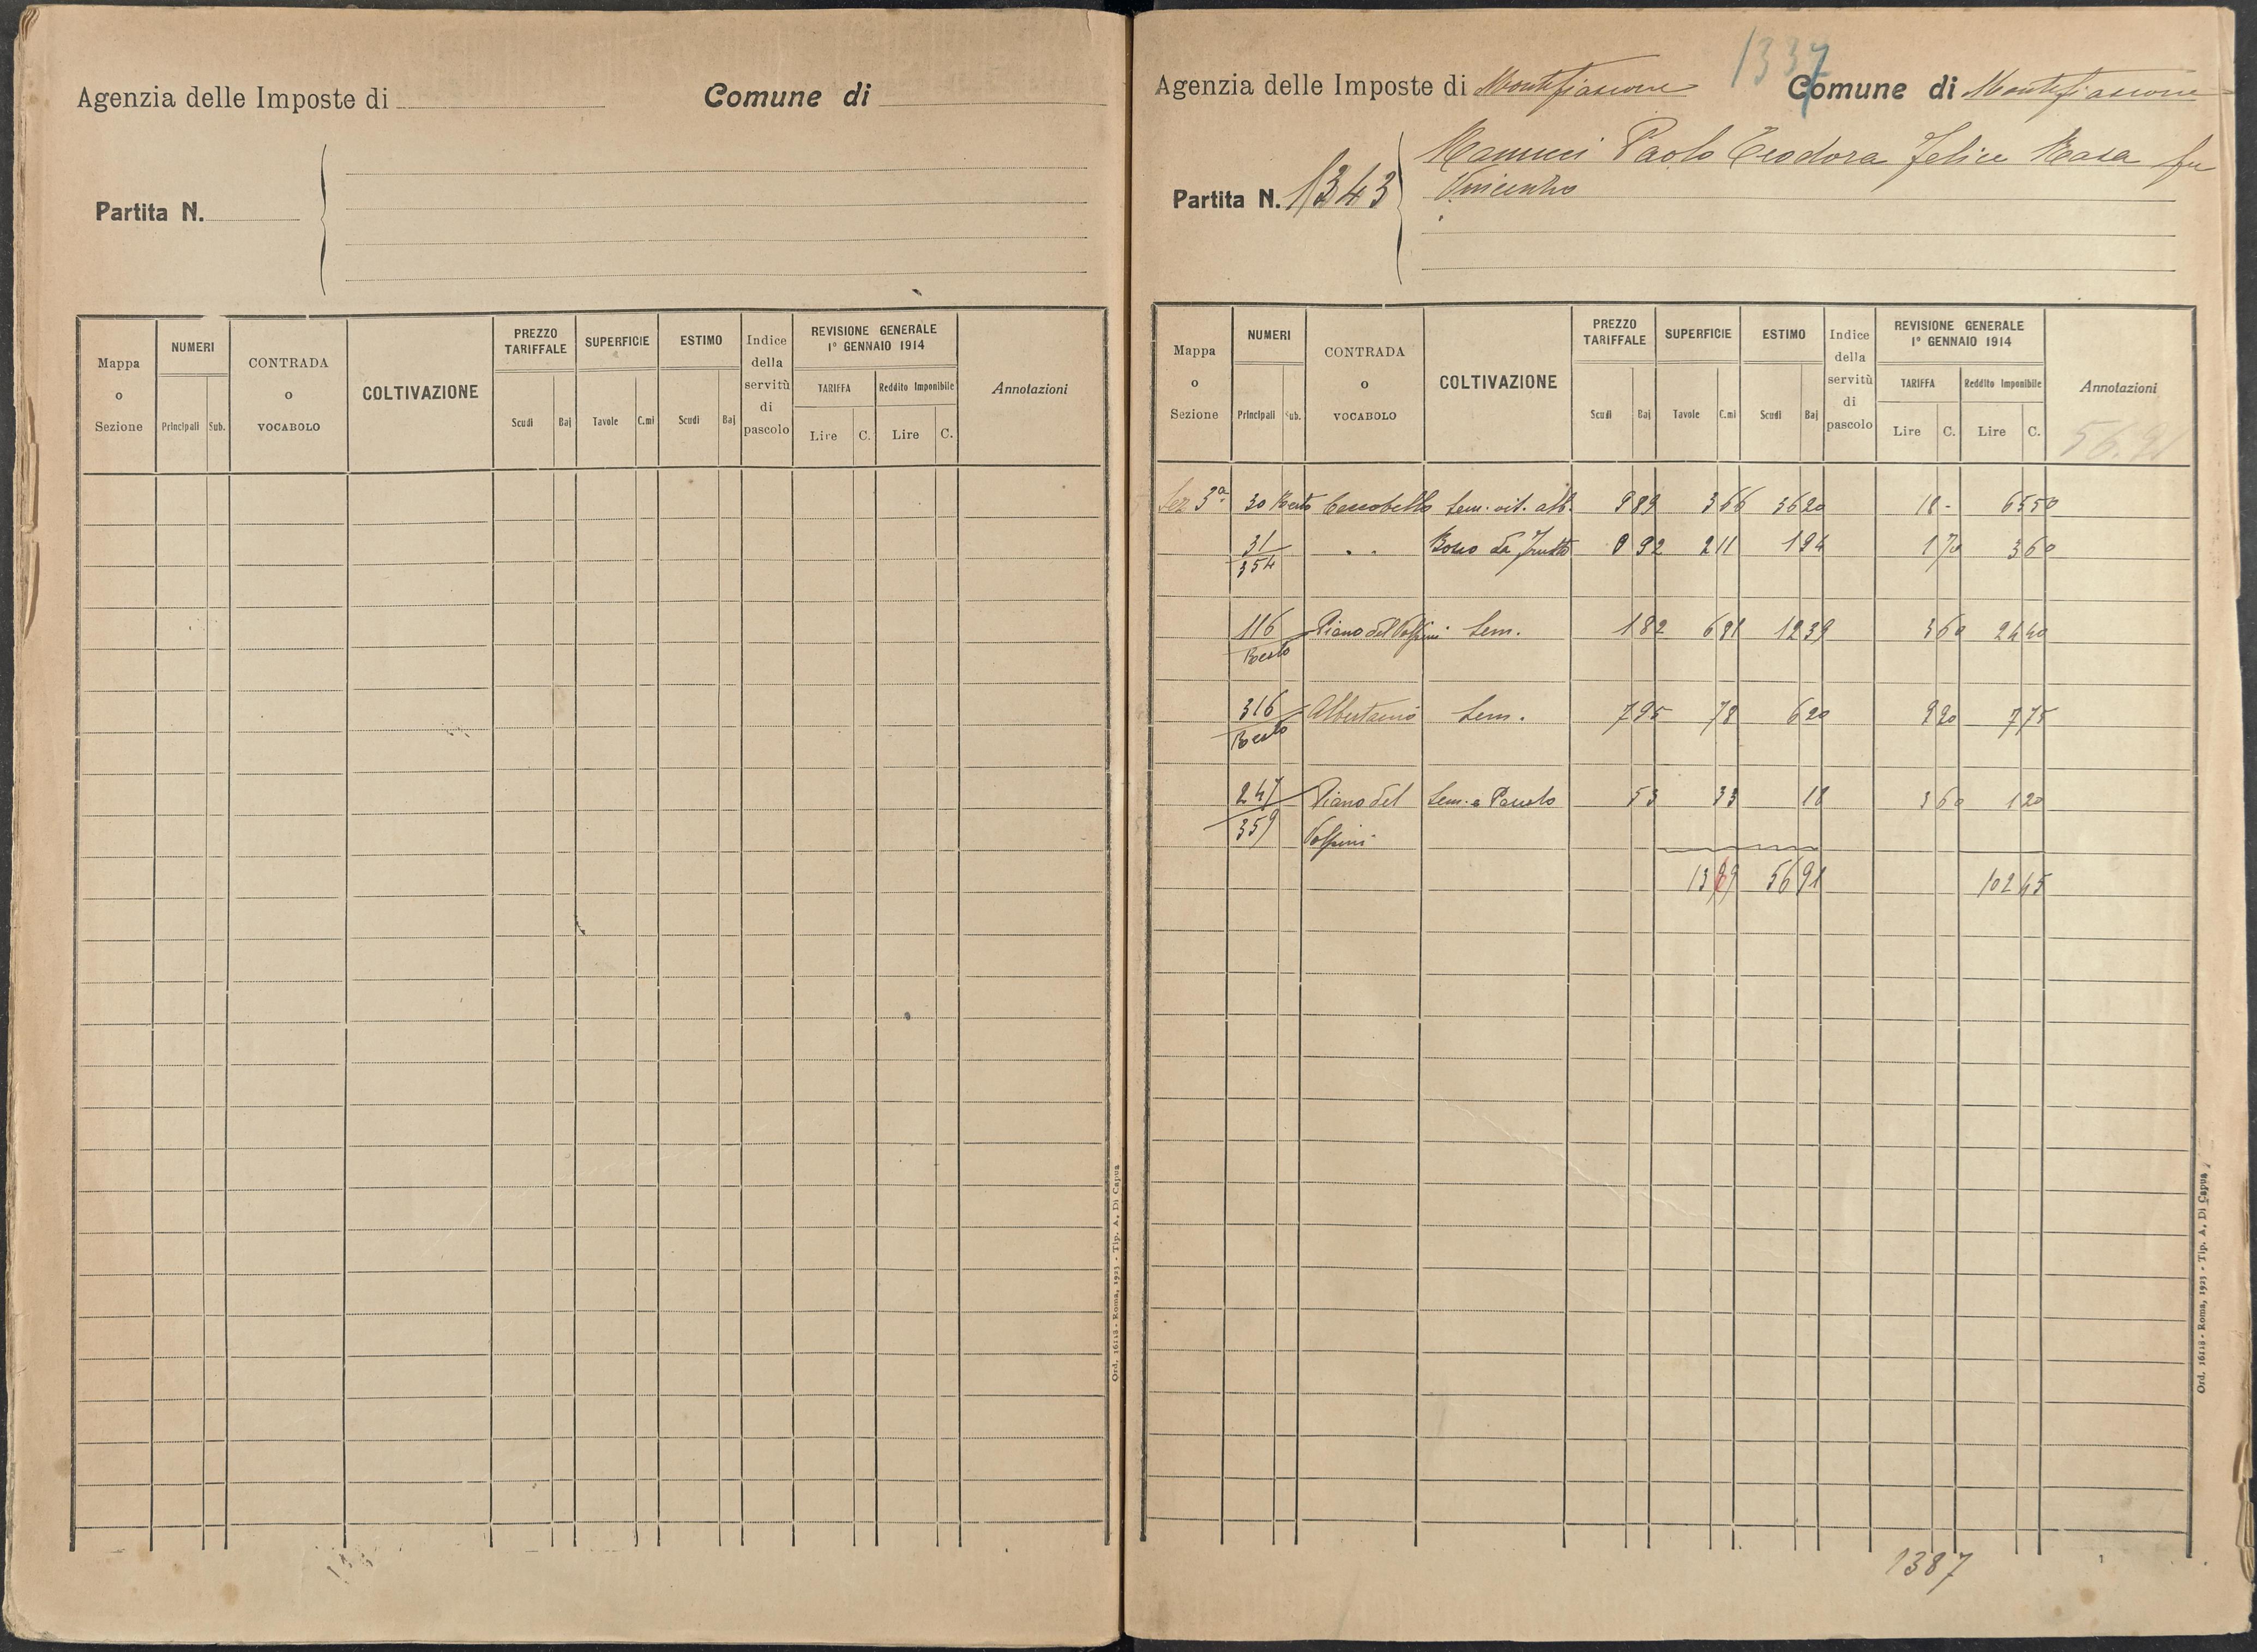 Agenzia delle Imposte di Comune di
Partita N.
Mappa o Sezione NUMERI Principali Sub. CONTRADA o VOCABOLO COLTIVAZIONE PREZZO TARIFFALE Scudi Baj SUPERFICIE Tavole C.mi ESTIMO Scudi Baj Indice della servitù di pascolo REVISIONE GENERALE 1° GENNAIO 1914 TARIFFA Lire C. Reddito Imponibile Lire C. Annotazioni
Ord. 16118 - Roma, 1923 - Tip. A. Di Capua
1337
Agenzia delle Imposte di Montefiascone Comune di Montefiascone
Partita N. 1343
Paolo Teodora Felice Rosa fu
Vincenzo
Mappa o Sezione NUMERI Principali Sub. CONTRADA o VOCABOLO COLTIVAZIONE PREZZO TARIFFALE Scudi Baj SUPERFICIE Tavole C.mi ESTIMO Scudi Baj Indice della servitù di pascolo REVISIONE GENERALE 1° GENNAIO 1914 TARIFFA Lire C. Reddito Imponibile Lire C. Annotazioni
56.91
Sez 3ª 30 Resto Sem. vit. alb. 9 89 3 66 36 20 18 - 65 50
31/354 " " Bosco da frutto 0 92 2 11 1 94 1 70 3 60
116/Resto Piano del Volpini Sem. 1 82 6 81 12 39 3 60 24 40
316/Resto Sem. 7 95 78 6 20 9 90 7 75
247/359 Piano del Volpini Sem. e Pascolo 53 33 18 3 60 1 20
13 69 56 91 102 45
1387
Ord. 16118 - Roma, 1923 - Tip. A. Di Capua